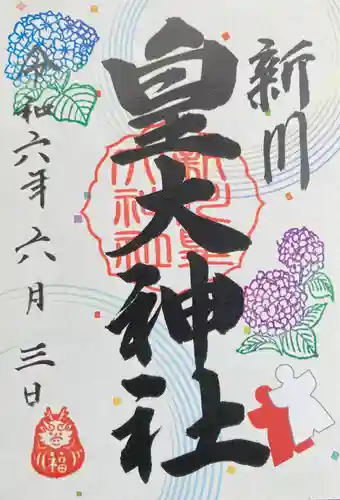 新川
皇大神社
令和六年六月三日
福